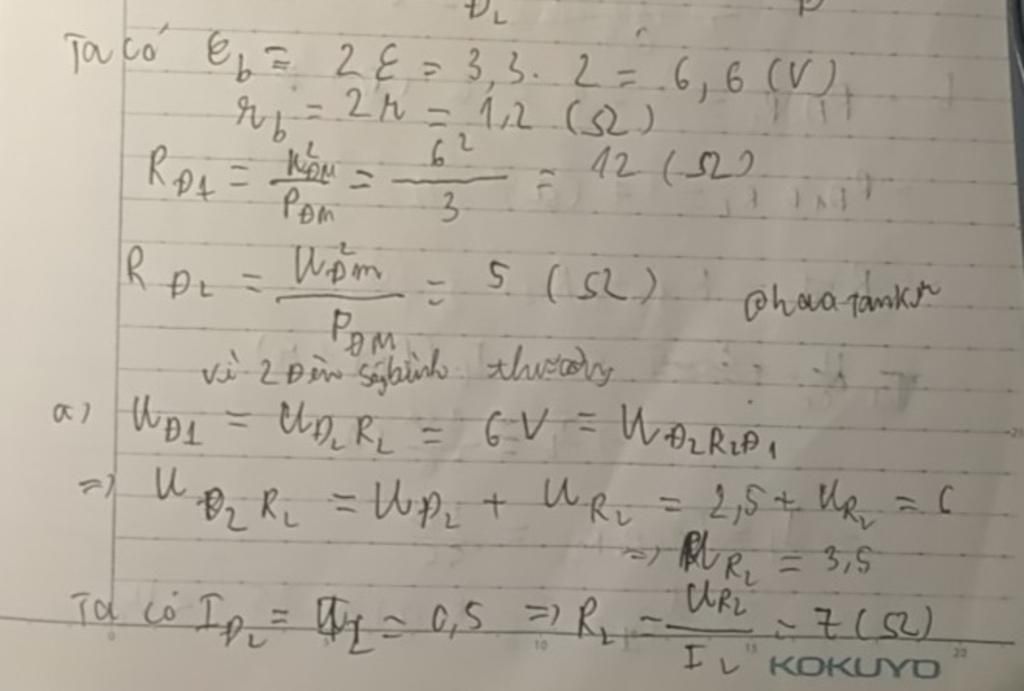 Đ2
Ta có Eb = 2E = 3,3. 2 = 6,6 (V)
rb = 2r = 1,2 (Ω)
RĐ1 = U²ĐM / PĐM = 6² / 3 = 12 (Ω)
RĐ2 = U²Đm / PĐM = 5 (Ω)
vì 2 Đèn sáng bình thường
a) UĐ1 = UĐ2R2 = 6V = UĐ2R2Đ1
=> UĐ2R2 = UĐ2 + UR2 = 2,5 + UR2 = 6
=> UR2 = 3,5
Ta có IĐ2 = I2 = 0,5 => R2 = UR2 / I2 = 7 (Ω)
10 15 20
KOKUYO